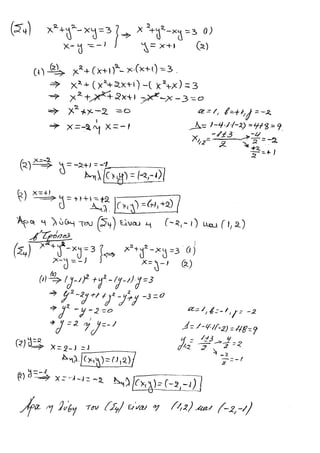 (Σ4) x²+y²-xy=3 } ⇒ x²+y²-xy=3 (1)
x-y=-1 y=x+1 (2)
(1) (2)⇒ x²+(x+1)²-x·(x+1)=3.
⇒ x²+(x²+2x+1)-(x²+x)=3
⇒ x²+x²+2x+1-x²-x-3=0
⇒ x²+x-2=0 α=1, β=+1, γ=-2
⇒ x=-2 ή x=-1 Δ=1-4·1·(-2)=4+8=9.
x1,2= -1±3/2 → -4/2=-2
→ +2/2=+1
(2) x=-2⇒ y=-2+1=-1
Δηλ (x,y)=(-2,-1)
(2) x=+1⇒ y=+1+1=+2
Δηλ. (x,y)=(+1,+2)
Άρα η λύση του (Σ4) είναι η (-2,-1) και (1,2)
Β' Τρόπος
(Σ4) x²+y²-xy=3 } ⇒ x²+y²-xy=3 (1)
x-y=-1 x=y-1 (2)
(1) (2)⇒ (y-1)²+y²-(y-1)y=3
⇒ y²-2y+1+y²-y²+y-3=0
⇒ y²-y-2=0 α=1, β=-1, γ=-2
⇒ y=2 ή y=-1 Δ=1-4·1(-2)=1+8=9
(2) y=2⇒ x=2-1=1 y1,2= 1±3/2 → 4/2=2
→ -2/2=-1
Δηλ (x,y)=(1,2)
(2) y=-1⇒ x=-1-1=-2 Δηλ (x,y)=(-2,-1)
Άρα η λύση του (Σ4) είναι η (1,2) και (-2,-1)